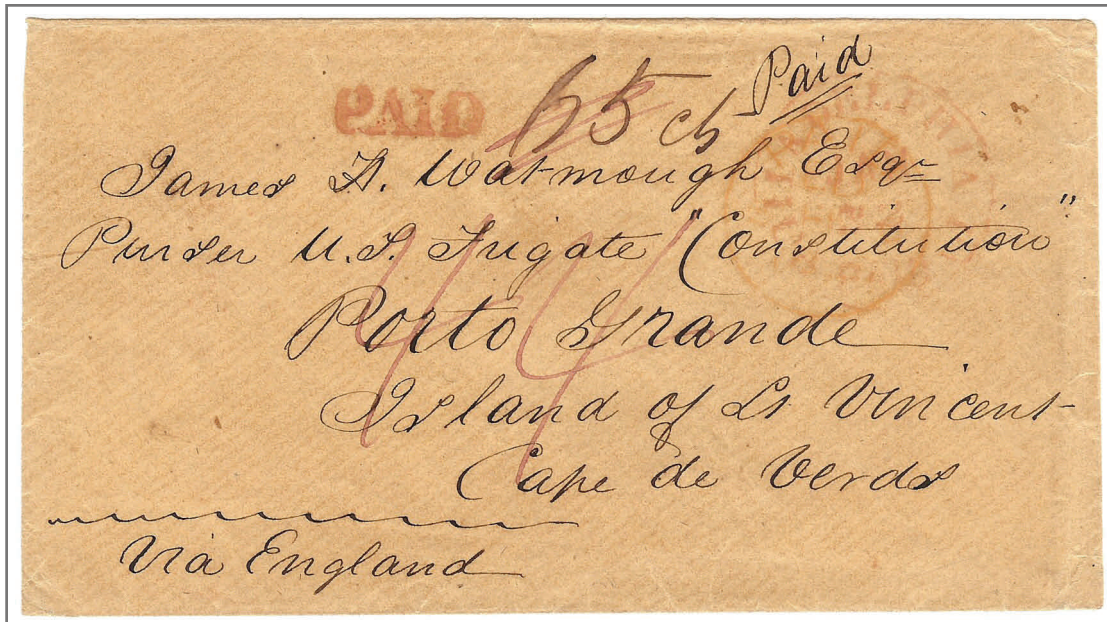 PAID 65 cts Paid
James H. Watmough Esqr
Purser U.S. Frigate "Constitution"
44
Porto Grande
Island of St Vincent
Cape de Verds
Via England